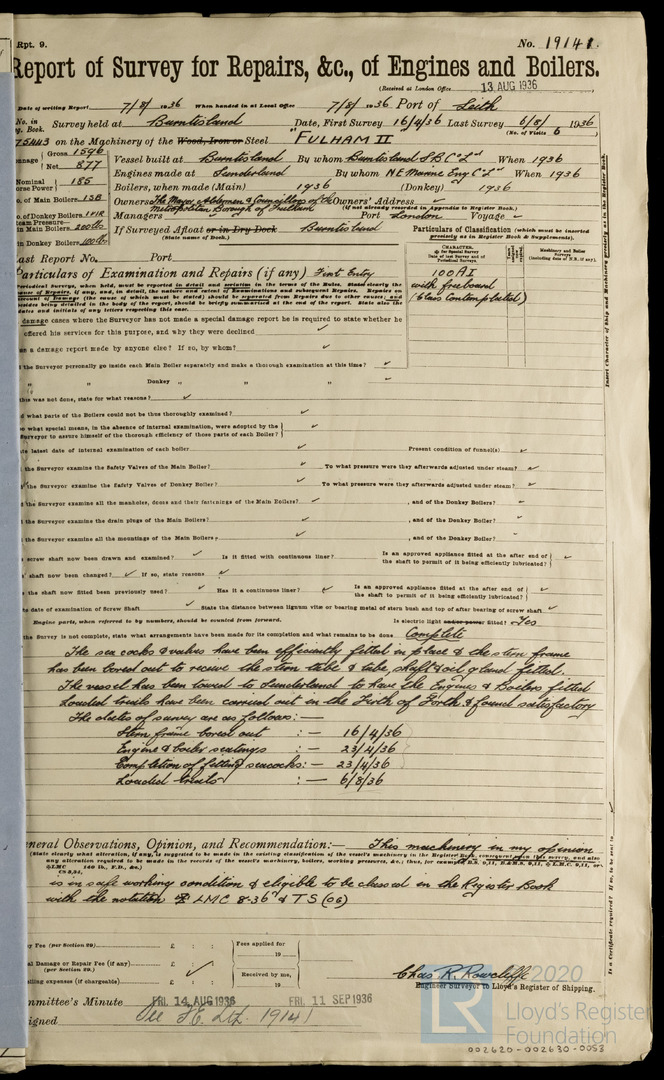 Rpt. 9.
No. 19141.
Report of Survey for Repairs, &c., of Engines and Boilers.
(Received at London Office 13 AUG 1936
Date of writing Report 7/8/1936 When handed in at Local Office 7/8/1936 Port of Leith
No. in Survey held at Burntisland Date, First Survey 16/4/36 Last Survey 6/8/1936
g. Book. (No. of Visits 6)
75443 on the Machinery of the Wood, Iron or Steel "FULHAM II"
nnage Gross 1596 Net 877
Vessel built at Burntisland By whom Burntisland S B Co Ld When 1936
Engines made at Sunderland By whom N E Marine Eng Co Ld When 1936
Nominal orse Power 185
Boilers, when made (Main) 1936 (Donkey) 1936
o. of Main Boilers 1SB
Owners The Mayor Aldermen & Councillors of the Metropolitan Borough of Fulham Owners' Address
(If not already recorded in Appendix to Register Book.)
o. of Donkey Boilers
Managers Port London Voyage
team Pressure—
n Main Boilers 200 lbs
If Surveyed Afloat or in Dry Dock Burntisland
(State name of Dock.)
n Donkey Boilers 100 lbs
Particulars of Classification (which must be inserted precisely as in Register Book & Supplements).
ast Report No. Port
CHARACTER.
Machinery and Boiler Surveys (including date of N.B., if any).
Particulars of Examination and Repairs (if any) First Entry
100 A1
with freeboard
(Class Contemplated)
damage cases where the Surveyor has not made a special damage report he is required to state whether he
offered his services for this purpose, and why they were declined
as a damage report made by anyone else? If so, by whom?
the Surveyor personally go inside each Main Boiler separately and make a thorough examination at this time?
" " Donkey " "
this was not done, state for what reasons?
what parts of the Boilers could not be thoroughly examined?
what special means, in the absence of internal examination, were adopted by the
Surveyor to assure himself of the thorough efficiency of those parts of each Boiler?
latest date of internal examination of each boiler Present condition of funnel(s)
the Surveyor examine the Safety Valves of the Main Boiler? To what pressure were they afterwards adjusted under steam?
the Surveyor examine the Safety Valves of Donkey Boiler? To what pressure were they afterwards adjusted under steam?
the Surveyor examine all the manholes, doors and their fastenings of the Main Boilers? , and of the Donkey Boilers?
the Surveyor examine the drain plugs of the Main Boilers? , and of the Donkey Boiler?
the Surveyor examine all the mountings of the Main Boilers? , and of the Donkey Boiler?
screw shaft now been drawn and examined? Is it fitted with continuous liner? Is an approved appliance fitted at the after end of the shaft to permit of it being efficiently lubricated?
shaft now been changed? If so, state reasons
the shaft now fitted been previously used? Has it a continuous liner? Is an approved appliance fitted at the after end of the shaft to permit of it being efficiently lubricated?
date of examination of Screw Shaft State the distance between lignum vitæ or bearing metal of stern bush and top of after bearing of screw shaft
Engine parts, when referred to by numbers, should be counted from forward. Is electric light and/or power fitted? Yes
the Survey is not complete, state what arrangements have been made for its completion and what remains to be done Complete
The sea cocks & valves have been efficiently fitted in place & the stern frame
has been bored out to receive the stern tube & tube, shaft & oil gland fitted.
The vessel has been towed to Sunderland to have the Engines & Boilers fitted
Loaded trials have been carried out in the Firth of Forth & found satisfactory
The dates of survey are as follows:—
Stern frame bored out :— 16/4/36
Engine & boiler seatings :— 23/4/36
Completion of fitting seacocks:— 23/4/36
Loaded trials :— 6/8/36
General Observations, Opinion, and Recommendation:— This machinery in my opinion
(State clearly what alteration, if any, is suggested to be made in the existing classification of the vessel's machinery in the Register Book, consequent upon this survey, and also
any alteration required to be made in the records of the vessel's machinery, boilers, working pressures, &c.;
is in safe working condition & eligible to be classed in the Register Book
with the notation LMC 8.36 & TS (OG)
y Fee (per Section 29) £ : :
al Damage or Repair Fee (if any) £ : :
(per Section 29.)
elling expenses (if chargeable) £ : :
Fees applied for
19
Received by me,
19
Chas R. Rowcliffe
Engineer Surveyor to Lloyd's Register of Shipping.
mmittee's Minute FRI. 14 AUG 1936 FRI. 11 SEP 1936
signed See F.E. Ltr. 19141
Insert Character of Ship and Machinery precisely as in the Register Book.
Is a Certificate required?
2020
LR
Lloyd's Register
Foundation
002620-002630-0053